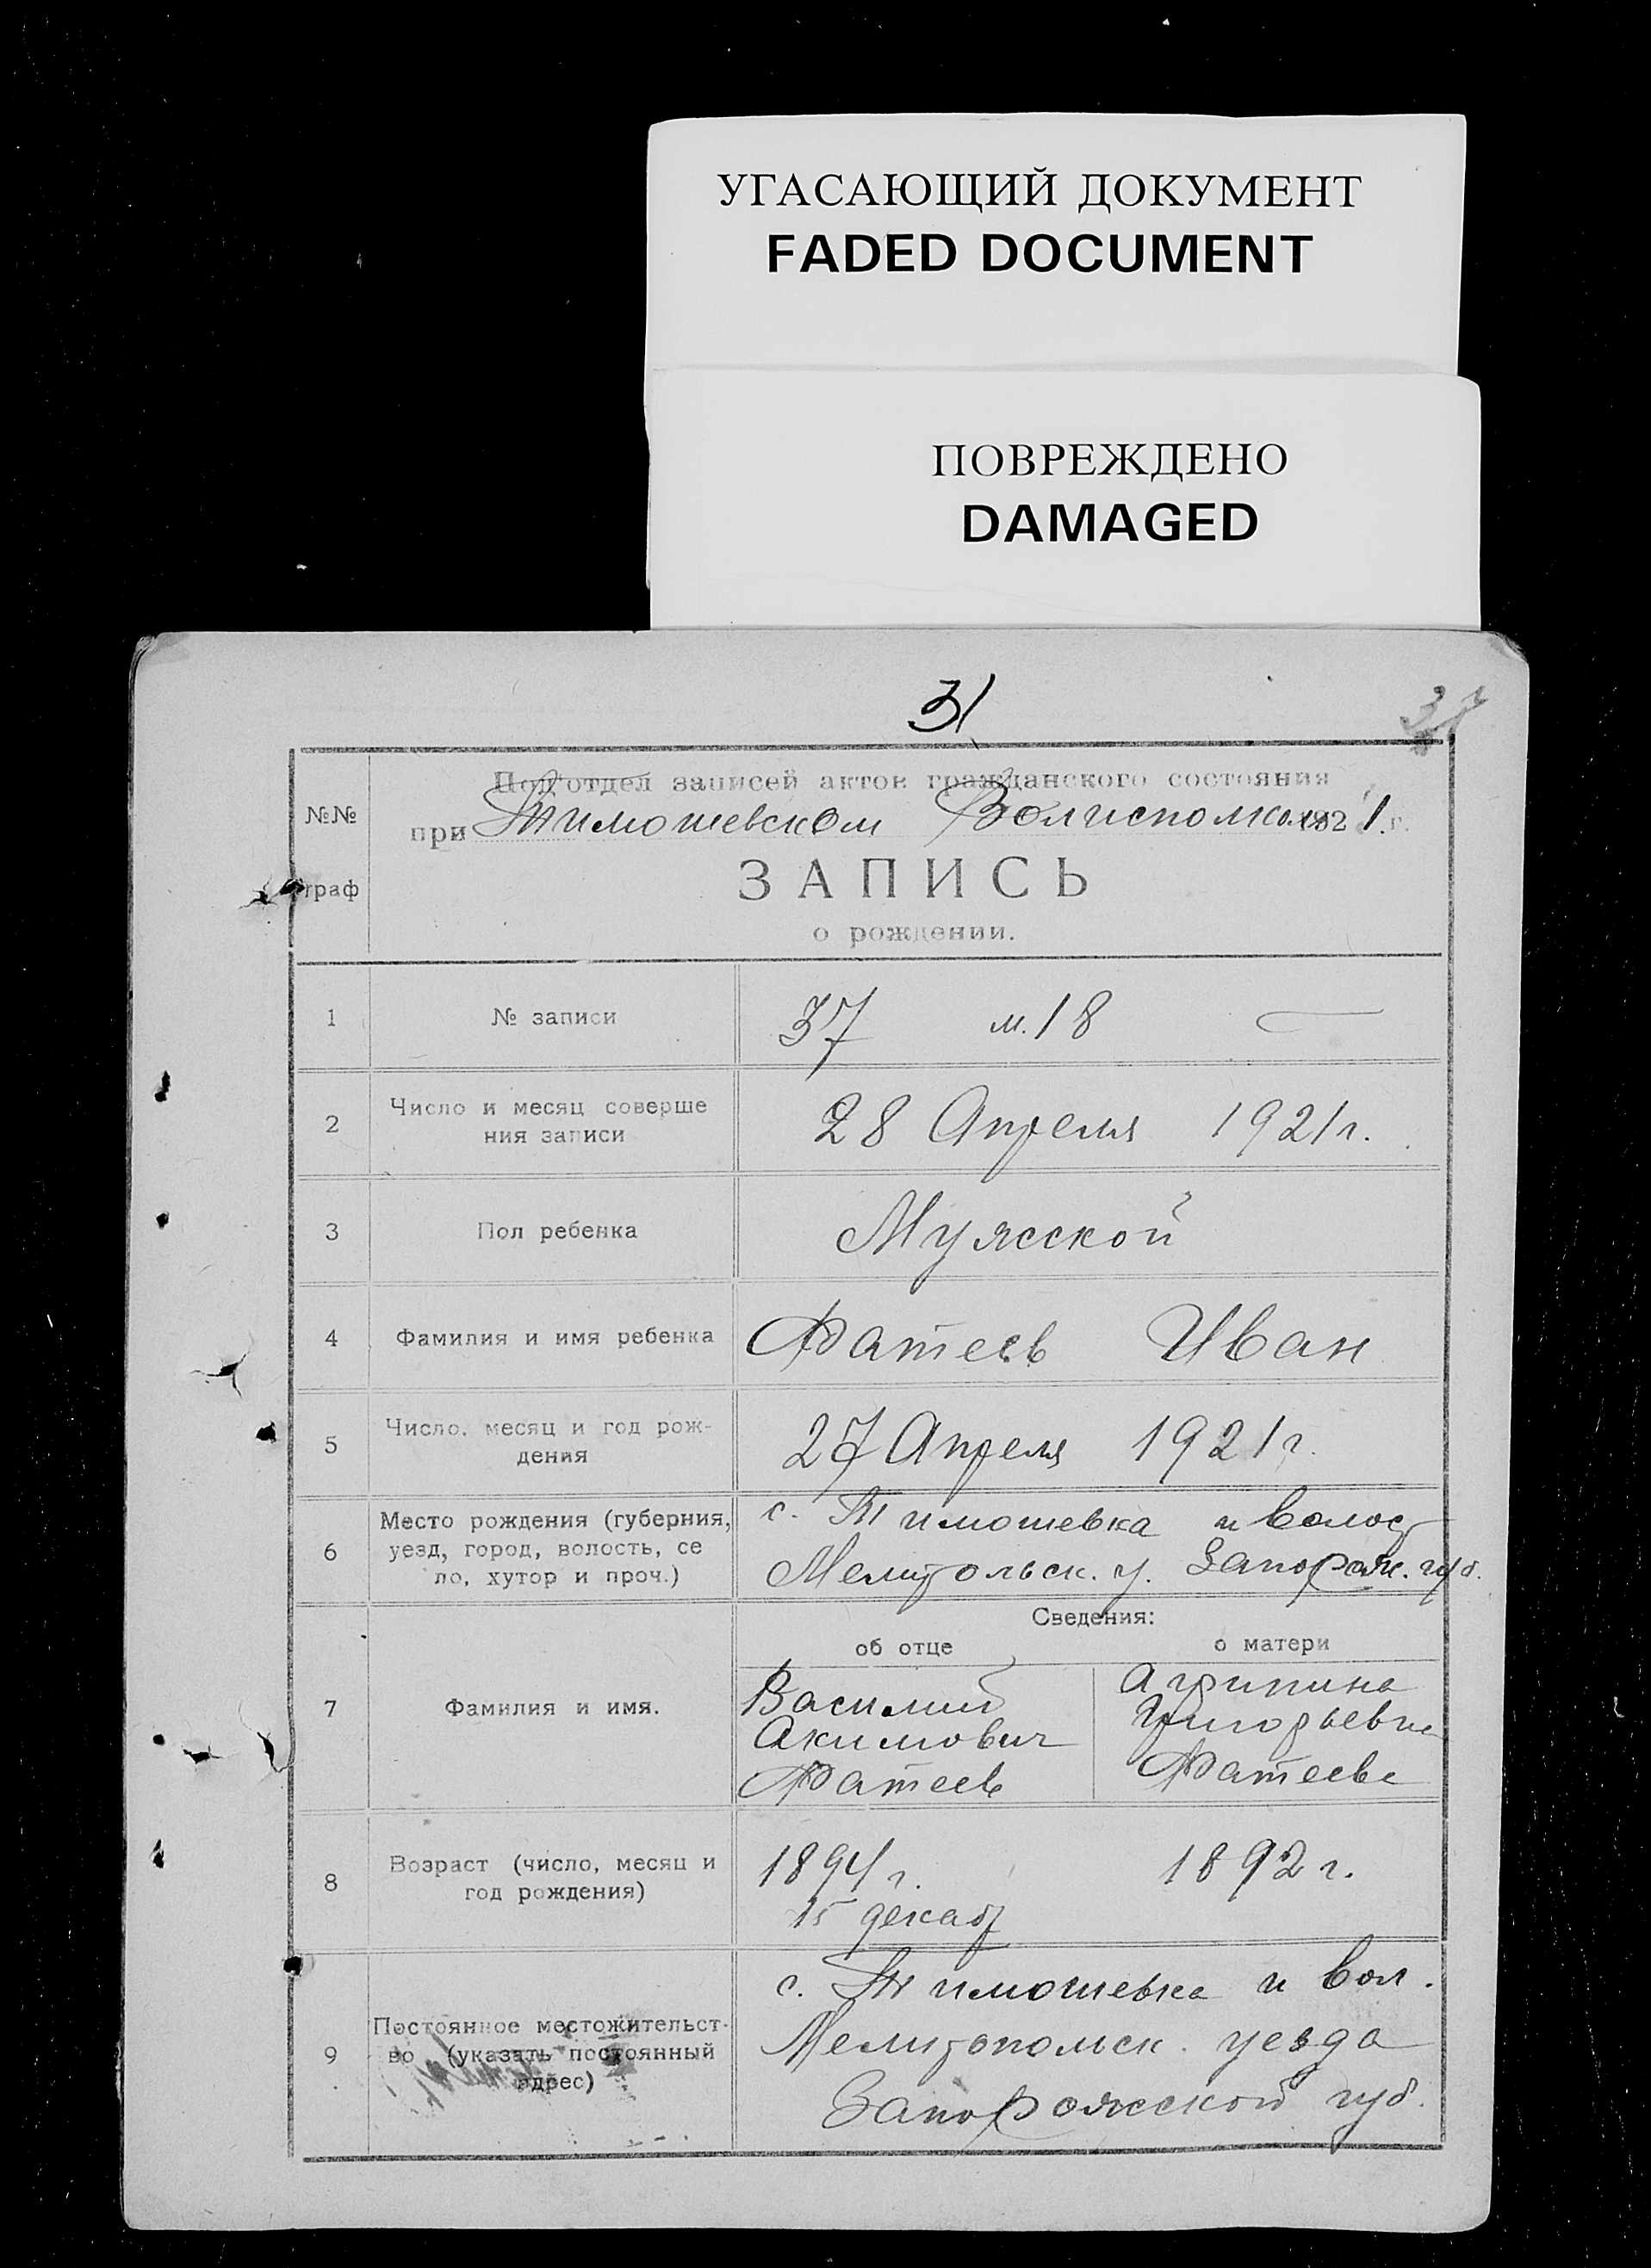 УГАСАЮЩИЙ ДОКУМЕНТ
FADED DOCUMENT
ПОВРЕЖДЕНО
DAMAGED
31
37
№№
граф
Под'отдел записей актов гражданского состояния
при Тимошевском Волисполкоме 1921 г.
ЗАПИСЬ
о рождении.
1
№ записи
37 м. 18
2
Число и месяц соверше
ния записи
28 Апреля 1921 г.
3
Пол ребенка
Мужской
4
Фамилия и имя ребенка
Фатеев Иван
5
Число, месяц и год рож-
дения
27 Апреля 1921 г.
6
Место рождения (губерния,
уезд, город, волость, се
ло, хутор и проч.)
с. Тимошевка и волост
Мелитольск. у. Запорож. губ.
Сведения:
об отце
о матери
7
Фамилия и имя.
Василий
Акимович
Фатеев
Агрипина
Григорьевна
Фатеева
8
Возраст (число, месяц и
год рождения)
1894 г.
15 декаб
1892 г.
9
Постоянное местожительст-
во (указать постоянный
адрес)
с. Тимошевка и вол.
Мелитопольск. уезда
Запорожской губ.